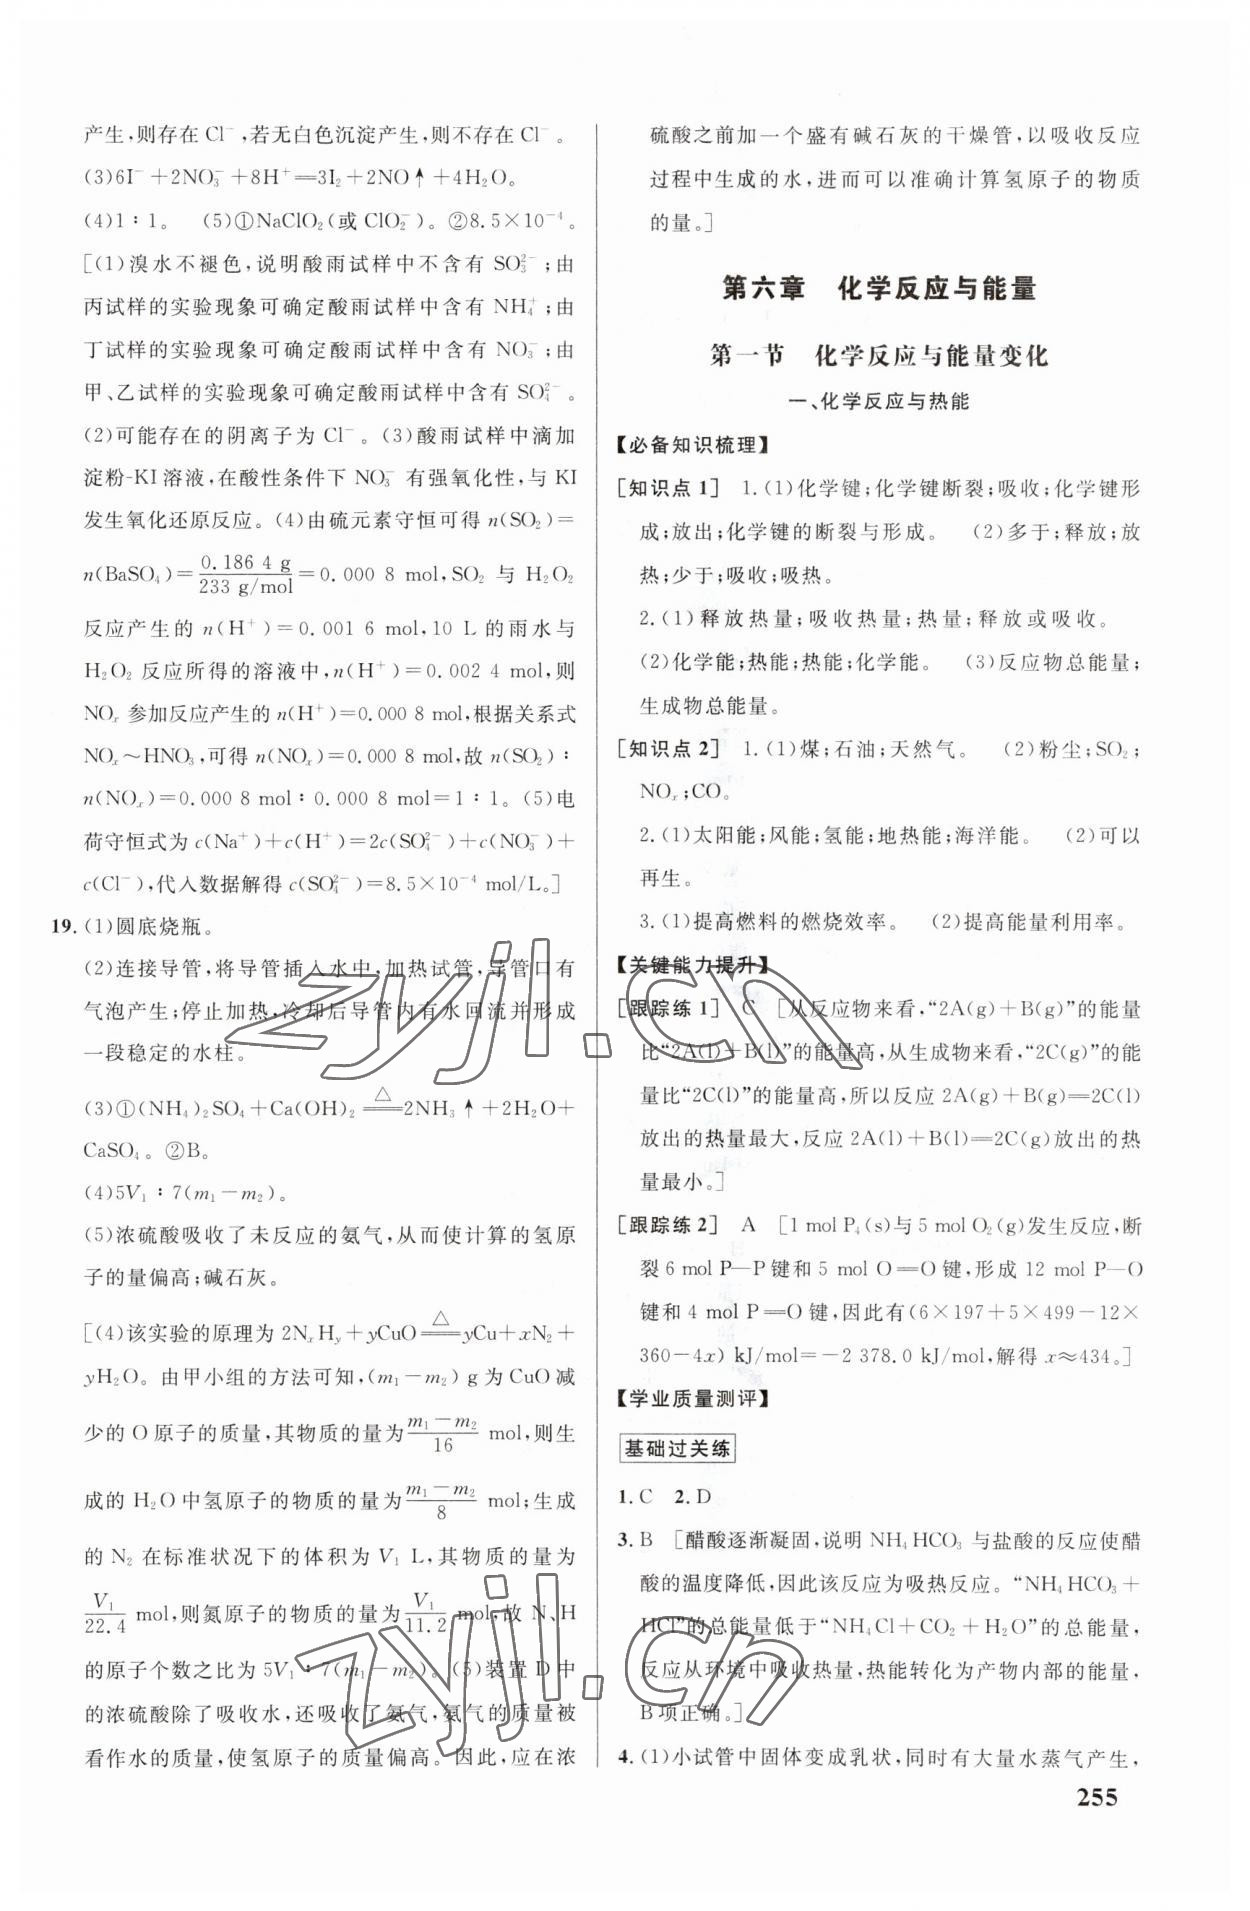 产生,则存在 Cl⁻,若无白色沉淀产生,则不存在 Cl⁻。
(3)6I⁻+2NO₃⁻+8H⁺══3I₂+2NO↑+4H₂O。
(4)1∶1。 (5)①NaClO₂(或 ClO₂⁻)。②8.5×10⁻⁴。
[(1)溴水不褪色,说明酸雨试样中不含有 SO₃²⁻;由
丙试样的实验现象可确定酸雨试样中含有 NH₄⁺;由
丁试样的实验现象可确定酸雨试样中含有 NO₃⁻;由
甲、乙试样的实验现象可确定酸雨试样中含有 SO₄²⁻。
(2)可能存在的阴离子为 Cl⁻。(3)酸雨试样中滴加
淀粉-KI 溶液,在酸性条件下 NO₃⁻ 有强氧化性,与 KI
发生氧化还原反应。(4)由硫元素守恒可得 n(SO₂)=
n(BaSO₄)=0.186 4 g/233 g/mol=0.000 8 mol,SO₂ 与 H₂O₂
反应产生的 n(H⁺)=0.001 6 mol,10 L 的雨水与
H₂O₂ 反应所得的溶液中,n(H⁺)=0.002 4 mol,则
NOₓ 参加反应产生的 n(H⁺)=0.000 8 mol,根据关系式
NOₓ～HNO₃,可得 n(NOₓ)=0.000 8 mol,故 n(SO₂)∶
n(NOₓ)=0.000 8 mol∶0.000 8 mol=1∶1。(5)电
荷守恒式为 c(Na⁺)+c(H⁺)=2c(SO₄²⁻)+c(NO₃⁻)+
c(Cl⁻),代入数据解得 c(SO₄²⁻)=8.5×10⁻⁴ mol/L。]
19. (1)圆底烧瓶。
(2)连接导管,将导管插入水中,加热试管,导管口有
气泡产生;停止加热,冷却后导管内有水回流并形成
一段稳定的水柱。
(3)①(NH₄)₂SO₄+Ca(OH)₂ △══ 2NH₃↑+2H₂O+
CaSO₄。②B。
(4)5V₁∶7(m₁−m₂)。
(5)浓硫酸吸收了未反应的氨气,从而使计算的氢原
子的量偏高;碱石灰。
[(4)该实验的原理为 2NₓHᵧ+yCuO △══ yCu+xN₂+
yH₂O。由甲小组的方法可知,(m₁−m₂) g 为 CuO 减
少的 O 原子的质量,其物质的量为 (m₁−m₂)/16 mol,则生
成的 H₂O 中氢原子的物质的量为 (m₁−m₂)/8 mol;生成
的 N₂ 在标准状况下的体积为 V₁ L,其物质的量为
V₁/22.4 mol,则氮原子的物质的量为 V₁/11.2 mol,故 N、H
的原子个数之比为 5V₁∶7(m₁−m₂)。(5)装置 D 中
的浓硫酸除了吸收水,还吸收了氨气,氨气的质量被
看作水的质量,使氢原子的质量偏高。因此,应在浓
硫酸之前加一个盛有碱石灰的干燥管,以吸收反应
过程中生成的水,进而可以准确计算氢原子的物质
的量。]
第六章 化学反应与能量
第一节 化学反应与能量变化
一、化学反应与热能
【必备知识梳理】
[知识点 1] 1.(1)化学键;化学键断裂;吸收;化学键形
成;放出;化学键的断裂与形成。 (2)多于;释放;放
热;少于;吸收;吸热。
2.(1)释放热量;吸收热量;热量;释放或吸收。
(2)化学能;热能;热能;化学能。 (3)反应物总能量;
生成物总能量。
[知识点 2] 1.(1)煤;石油;天然气。 (2)粉尘;SO₂;
NOₓ;CO。
2.(1)太阳能;风能;氢能;地热能;海洋能。 (2)可以
再生。
3.(1)提高燃料的燃烧效率。 (2)提高能量利用率。
【关键能力提升】
[跟踪练 1] C [从反应物来看,“2A(g)+B(g)”的能量
比“2A(l)+B(l)”的能量高,从生成物来看,“2C(g)”的能
量比“2C(l)”的能量高,所以反应 2A(g)+B(g)══2C(l)
放出的热量最大,反应 2A(l)+B(l)══2C(g)放出的热
量最小。]
[跟踪练 2] A [1 mol P₄(s)与 5 mol O₂(g)发生反应,断
裂 6 mol P—P 键和 5 mol O══O 键,形成 12 mol P—O
键和 4 mol P══O 键,因此有(6×197+5×499−12×
360−4x) kJ/mol=−2 378.0 kJ/mol,解得 x≈434。]
【学业质量测评】
基础过关练
1. C 2. D
3. B [醋酸逐渐凝固,说明 NH₄HCO₃ 与盐酸的反应使醋
酸的温度降低,因此该反应为吸热反应。“NH₄HCO₃+
HCl”的总能量低于“NH₄Cl+CO₂+H₂O”的总能量,
反应从环境中吸收热量,热能转化为产物内部的能量,
B 项正确。]
4. (1)小试管中固体变成乳状,同时有大量水蒸气产生,
255
zyjl.cn
zyjl.cn